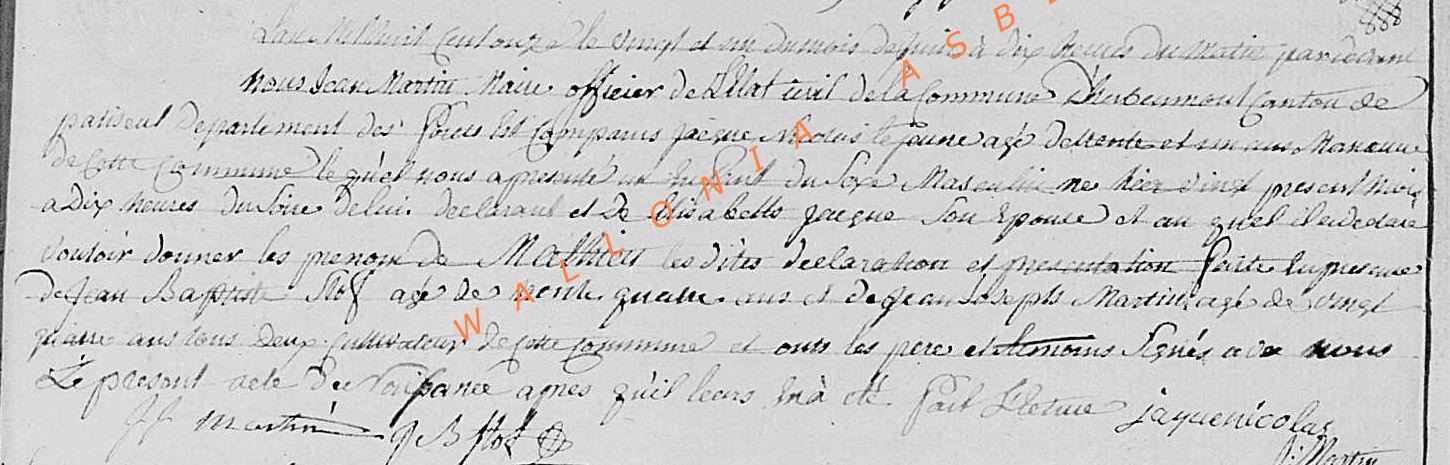 L'an Mil huit cent onze le vingt et un du mois de juin à dix heures du Matin par devant
Nous Jean Martin Maire officier de L'Etat civil de la Commune D'herbeumont Canton de
paliseul Departement des forets Est Comparus jacque Nicolas le jeune agé de trente et un ans Manœuvre
de Cette Commune le quel nous a presenté un enfant du Sexe Masculin né hier vingt present Mois
a Dix heures du Soire de lui declarant et De Elisabette jacque Son Epouse et au quel il a declaré
vouloir donner les prenom de Mathieu les dites declaration et presentation faite En presence
de Jean Baptiste Stof agé de trente quatre ans et de Jean Joseph Martin agé de vingt
quatre ans tous deux Cultivateur de Cette Commune et onts les pere et temoins Signés avec nous
Le present acte De Naissance apres qu'il leurs En à été fait Lecture jaque nicolas
JJ Martin J B Stof J: Martin
WALLONIA ASB